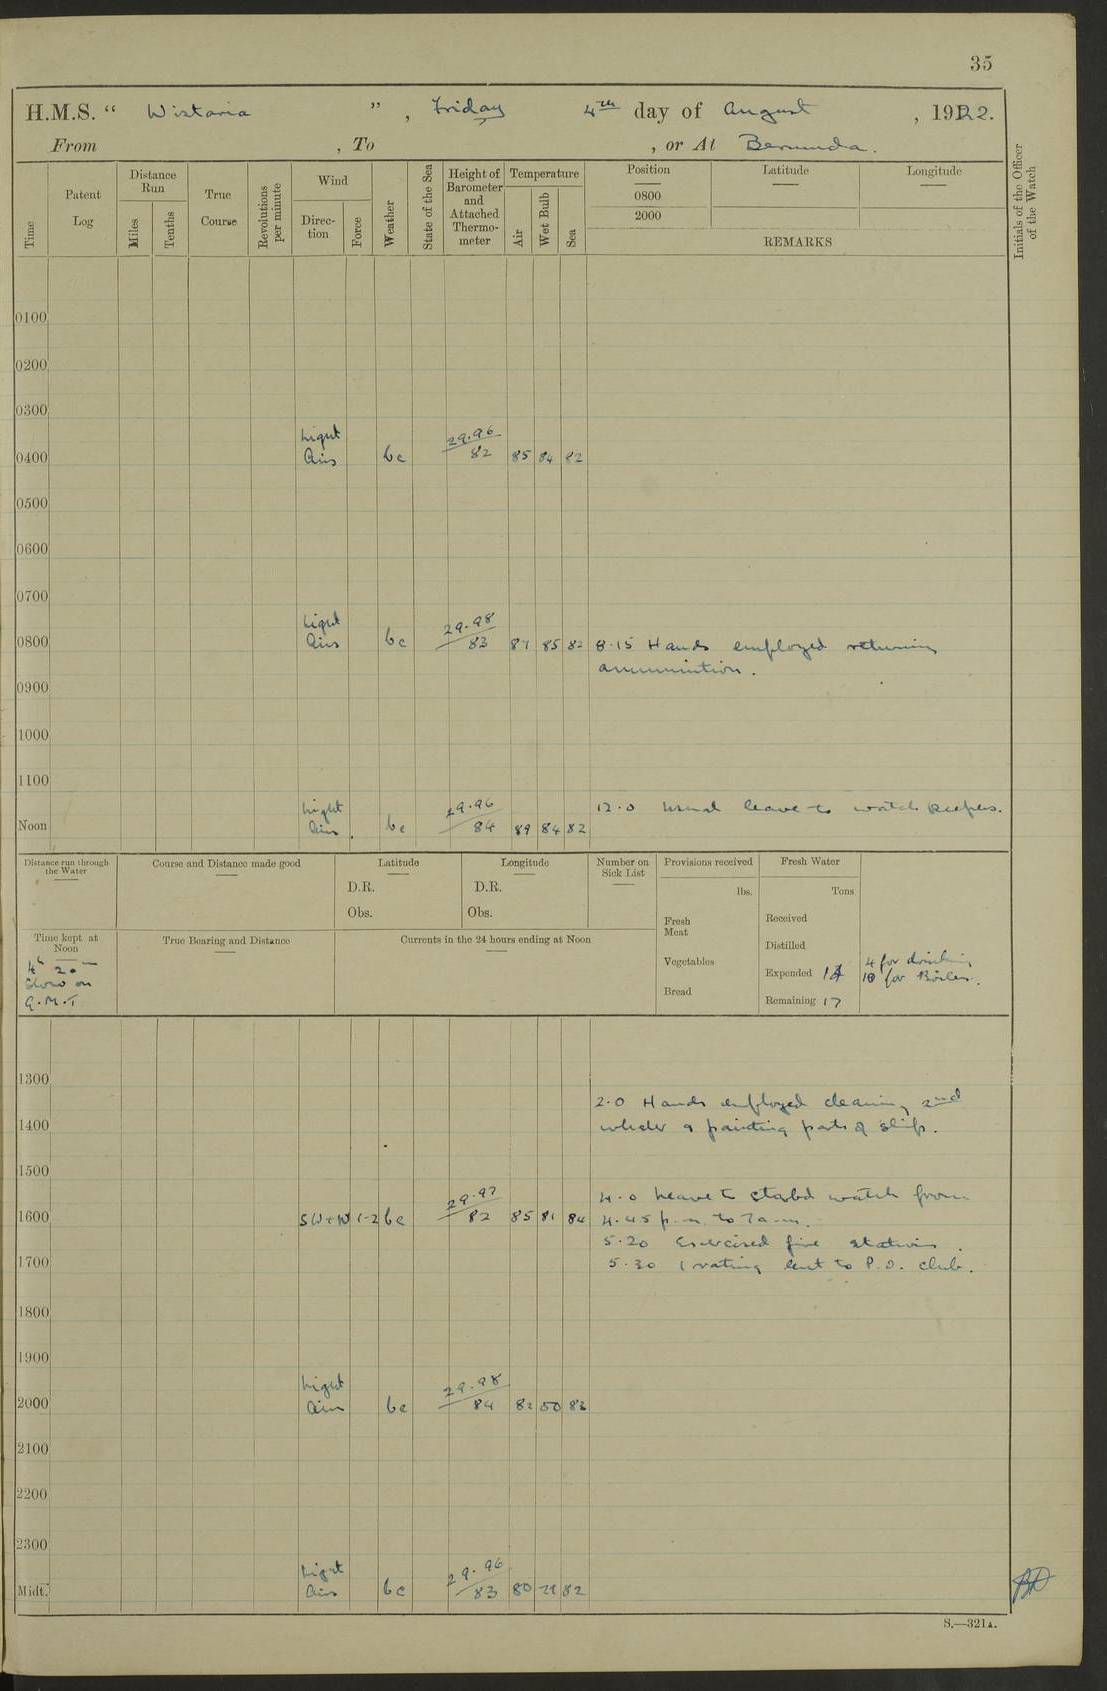 35
H.M.S. " Wistaria ", Friday 4th day of August, 1922.
From , To , or At Bermuda.
Time
Patent Log
Distance Run
Miles
Tenths
True Course
Revolutions per minute
Wind
Direction
Force
Weather
State of the Sea
Height of Barometer and Attached Thermometer
Temperature
Air
Wet Bulb
Sea
Position
Latitude
Longitude
0800
2000
REMARKS
Initials of the Officer of the Watch
0100
0200
0300
Light 29.96
0400 Airs bc 82 85 84 82
0500
0600
0700
Light 29.98
0800 Airs bc 83 87 85 82 8.15 Hands employed returning
ammunition.
0900
1000
1100
Light 29.96 12.0 Usual leave to watch keepers.
Noon Airs. bc 84 89 84 82
Distance run through the Water
Course and Distance made good
Latitude
D.R.
Obs.
Longitude
D.R.
Obs.
Number on Sick List
Provisions received
lbs.
Fresh Meat
Vegetables
Bread
Fresh Water
Tons
Received
Distilled
Expended 14 4 for drinking
10 for Boiler.
Remaining 17
Time kept at Noon
4h 20m
Slow on
G.M.T
True Bearing and Distance
Currents in the 24 hours ending at Noon
1300
2.0 Hands employed cleaning 2nd
1400 whaler & painting parts of ship.
1500
29.97 4.0 Leave to starbd watch from
1600 1-2 bc 82 85 81 84 4.45 p.m. to 7 a.m.
5.20 Exercised fire stations.
1700 5.30 1 rating lent to P.O. club.
1800
1900
Light 29.98
2000 Airs bc 84 82 83
2100
2200
2300
Light 29.96
Midt. Airs bc 83 80 82
S.—321A.